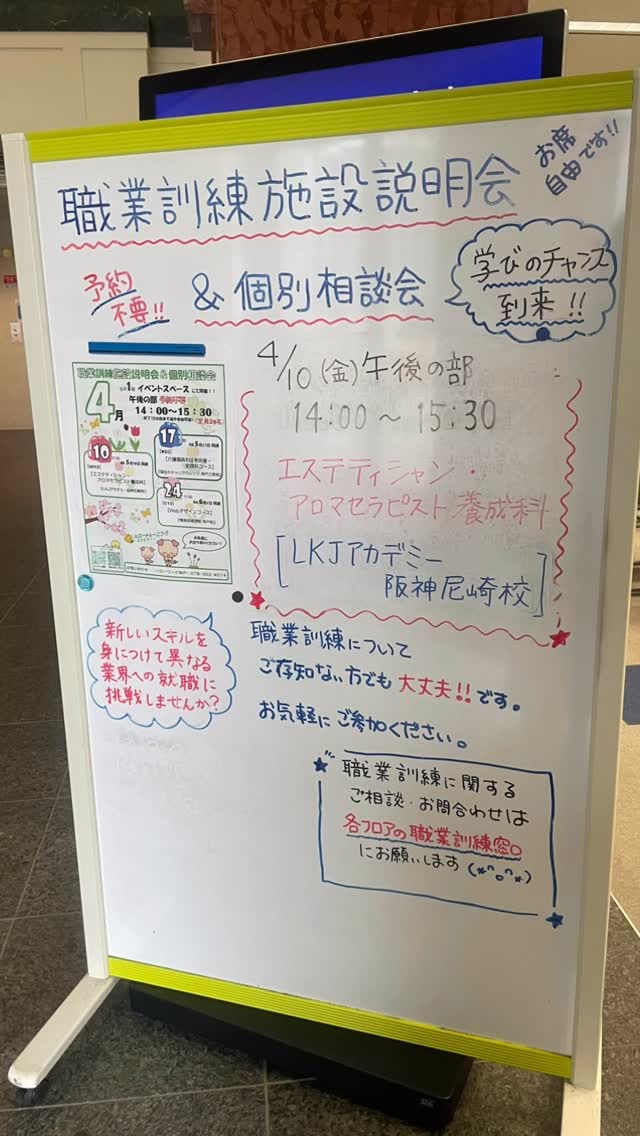 お席
自由です!!
職業訓練施設説明会
予約
不要!!
& 個別相談会
学びのチャンス
到来!!
4/10(金)午後の部
14:00〜15:30
エステティシャン・
アロマセラピスト養成科
[LKJアカデミー
阪神尼崎校]
職業訓練施設説明会&個別相談会
イベントスペースにて開催!!
4月
午後の部 予約不要
14:00〜15:30
(定員28名)
10
17
24
【エステティシャン・
アロマセラピスト養成科】
【Webデザインコース】
新しいスキルを
身につけて異なる
業界への就職に
挑戦しませんか?
職業訓練について
ご存知ない方でも大丈夫!!です。
お気軽にご参加ください。
職業訓練に関する
ご相談・お問合わせは
各フロアの職業訓練窓口
にお願いします(*^o^*)